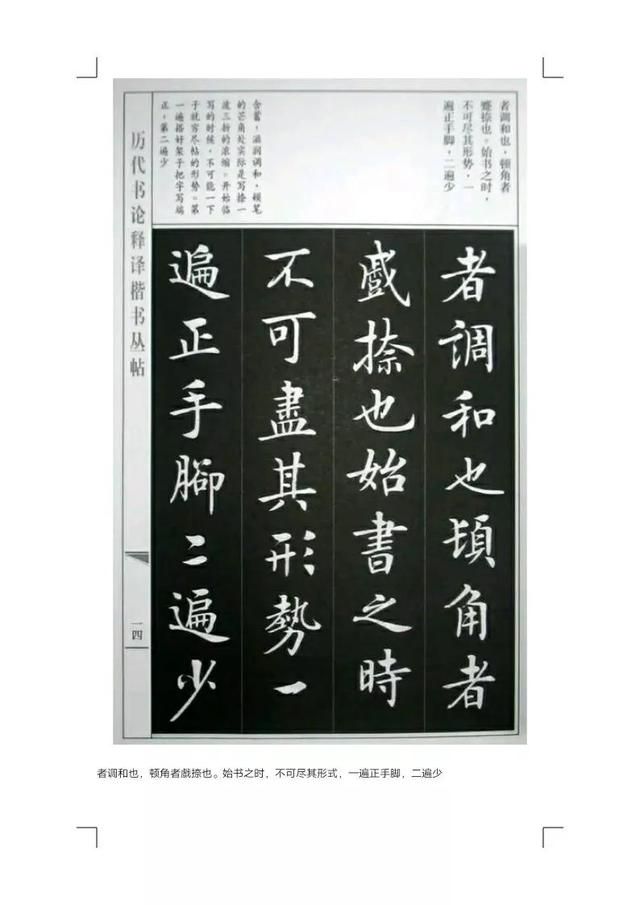 者调和也，顿角者
蹙捺也。始书之时，
不可尽其形势，一
遍正手脚，二遍少
含蓄，滋润调和，顿笔
的芒角处实际是写捺一
波三折的浓缩。开始临
写的时候，不可能一下
子就穷尽帖的形势。第
一遍搭好架子把字写端
正，第二遍少
者調和也頓角者
戯捺也始書之時
不可盡其形勢一
遍正手腳二遍少
历代书论释译楷书丛帖
一四
者调和也，顿角者戯捺也。始书之时，不可尽其形式，一遍正手脚，二遍少